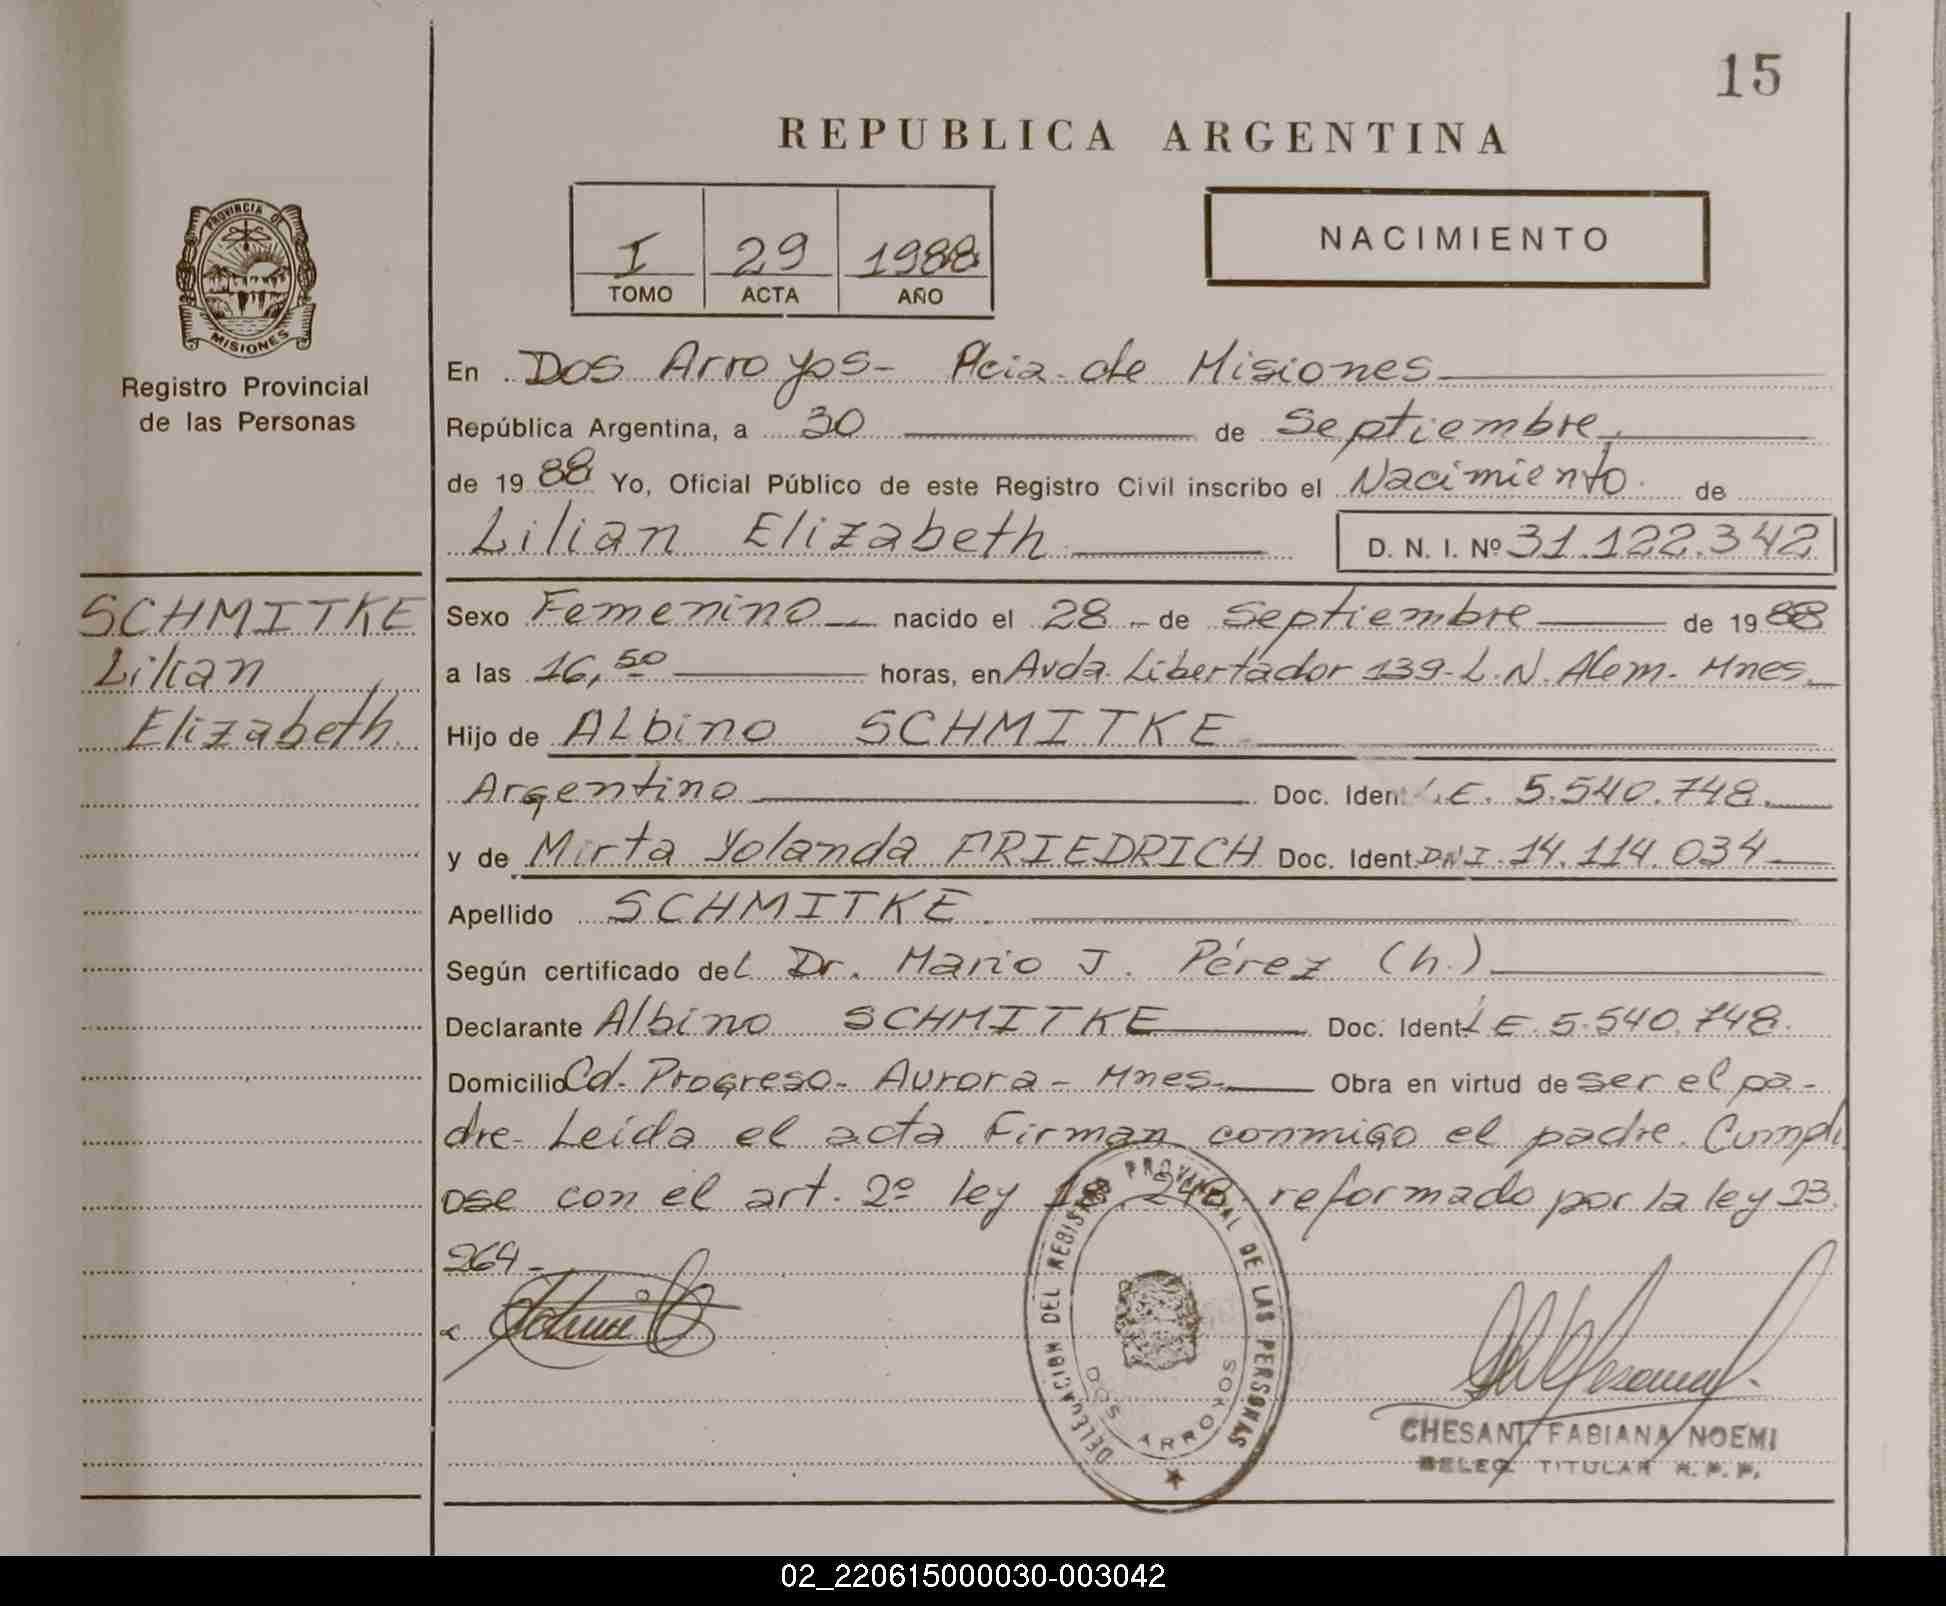 15
REPUBLICA ARGENTINA
I 29 1988
TOMO ACTA AÑO
NACIMIENTO
PROVINCIA DE
MISIONES
Registro Provincial
de las Personas
SCHMITKE
Lilian
Elizabeth
En Dos Arroyos- Pcia. de Misiones
República Argentina, a 30 de Septiembre
de 1988 Yo, Oficial Público de este Registro Civil inscribo el Nacimiento de
Lilian Elizabeth D. N. I. Nº 31.122.342
Sexo Femenino nacido el 28 - de Septiembre de 1988
a las 16,50 horas, en Avda. Libertador 139- L. N. Alem. Mnes.
Hijo de Albino SCHMITKE
Argentino Doc. Ident L.E. 5.540.748.
y de Mirta Yolanda FRIEDRICH Doc. Ident. DNI. 14.114.034
Apellido SCHMITKE.
Según certificado del Dr. Mario J. Pérez (h.)
Declarante Albino SCHMITKE Doc. Ident. L E. 5.540.748.
Domicilio Cd. Progreso- Aurora - Mnes. Obra en virtud de ser el pa-
dre- Leída el acta Firman conmigo el padre. Cumpli
ose con el art. 2º ley 18.248, reformado por la ley 23.
264-
DELEGACION DEL REGISTRO PROVINCIAL DE LAS PERSONAS
DOS ARROYOS
CHESANI, FABIANA NOEMI
DELEG. TITULAR R. P. P.
02_220615000030-003042